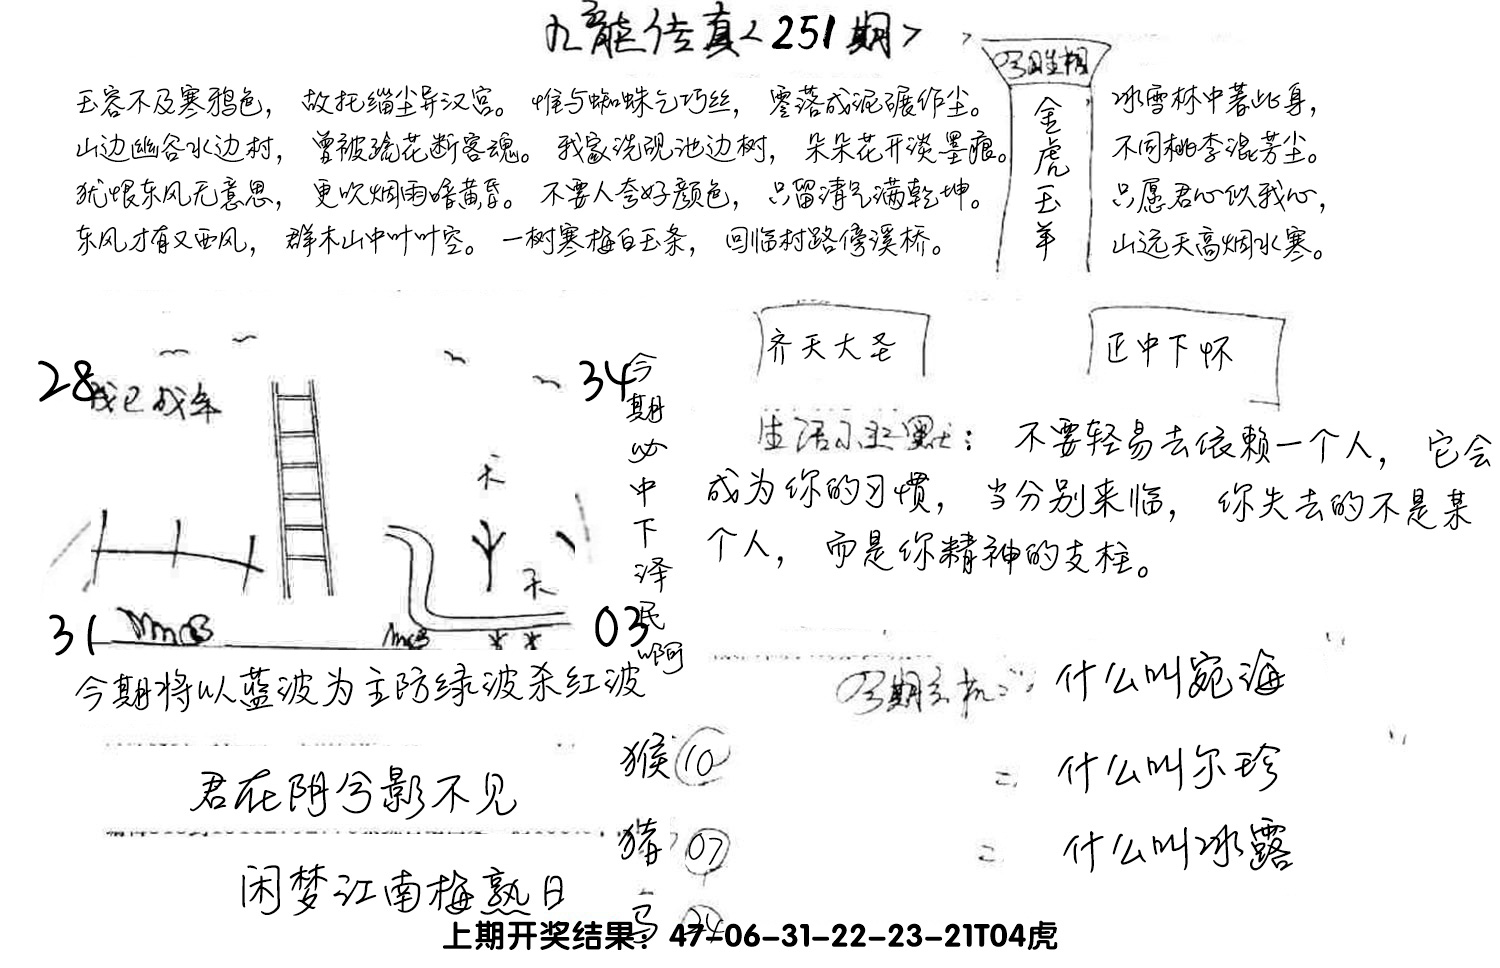 九龍传真<251期>
玉容不及寒鸦色，故托缁尘异汉宫。惟与蜘蛛乞巧丝，零落成泥碾作尘。
山边幽谷水边村，曾被疏花断客魂。我家洗砚池边树，朵朵花开淡墨痕。
犹恨东风无意思，更吹烟雨暗黄昏。不要人夸好颜色，只留清气满乾坤。
东风才有又西风，群木山中叶叶空。一树寒梅白玉条，回临村路傍溪桥。
今期生相
金虎玉羊
冰雪林中著此身，
不同桃李混芳尘。
只愿君心似我心，
山远天高烟水寒。
28
我已成年
34
天
天
31
03
今期必中下泽民啊
今期将以蓝波为主防绿波杀红波
齐天大圣
正中下怀
生活小幽默：不要轻易去依赖一个人，它会
成为你的习惯，当分别来临，你失去的不是某
个人，而是你精神的支柱。
今期玄机：什么叫宛海
=什么叫尔珍
=什么叫冰露
君在阴兮影不见
闲梦江南梅熟日
猴10
猪07
马24
上期开奖结果：47-06-31-22-23-21T04虎